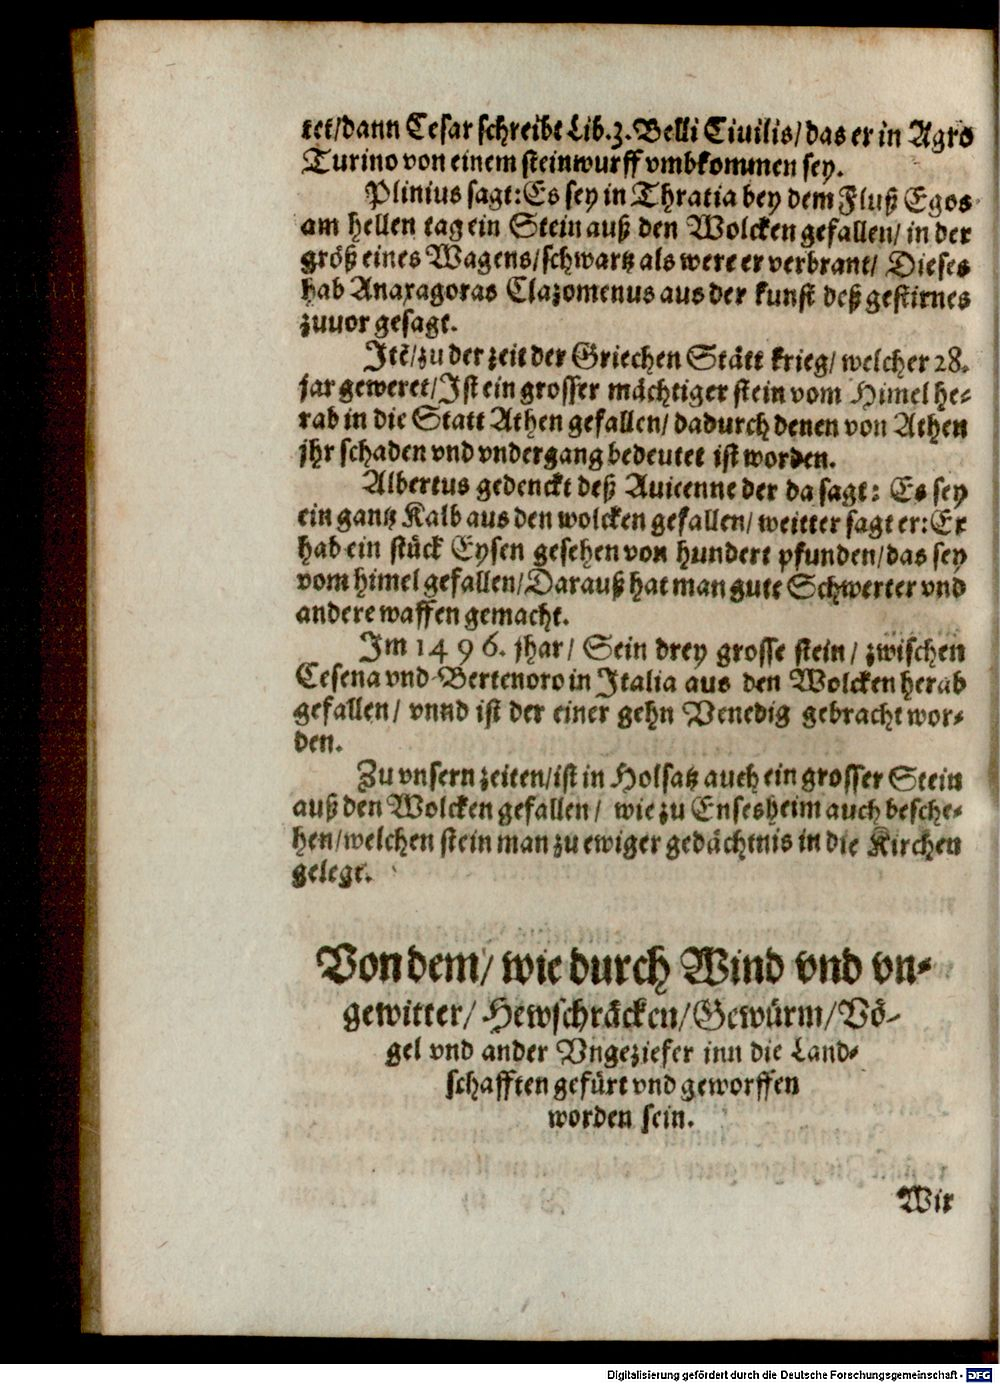 tet/dann Cesar schreibt Lib. 3. Belli Ciuilis/das er in Agro
Turino von einem steinwurff vmbkommen sey.
Plinius sagt: Es sey in Thratia bey dem Fluß Egos
am hellen tag ein Stein auß den Wolcken gefallen/ in der
größ eines Wagens/schwartz als were er verbrant/ Dieses
hab Anaxagoras Clazomenus aus der kunst deß gestirnes
zuuor gesagt.
Itē/zu der zeit der Griechen Stätt krieg/ welcher 28.
jar geweret/Ist ein grosser mächtiger stein vom Himel he-
rab in die Statt Athen gefallen/ dadurch denen von Athen
jhr schaden vnd vndergang bedeutet ist worden.
Albertus gedenckt deß Auicenne der da sagt: Es sey
ein gantz Kalb aus den wolcken gefallen/ weitter sagt er: Er
hab ein stück Eysen gesehen von hundert pfunden/das sey
vom himel gefallen/Darauß hat man gute Schwerter vnd
andere waffen gemacht.
Im 1496. jhar/ Sein drey grosse stein/ zwischen
Cesena vnd Bertenoro in Italia aus den Wolcken herab
gefallen/ vnnd ist der einer gehn Venedig gebracht wor-
den.
Zu vnsern zeiten/ist in Holsatz auch ein grosser Stein
auß den Wolcken gefallen/ wie zu Ensesheim auch besche-
hen/welchen stein man zu ewiger gedächtnis in die Kirchen
gelegt.
Von dem/ wie durch Wind vnd vn-
gewitter/ Hewschräcken/Gewürm/Vö-
gel vnd ander Vngeziefer inn die Land-
schafften gefürt vnd geworffen
worden sein.
Wir
Digitalisierung gefördert durch die Deutsche Forschungsgemeinschaft - DFG